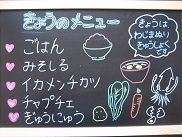 きょうのメニュー
ごはん
みそしる
イカメンチカツ
チャプチェ
ぎゅうにゅう
きょうは
わじまぬり
きゅうしょくで